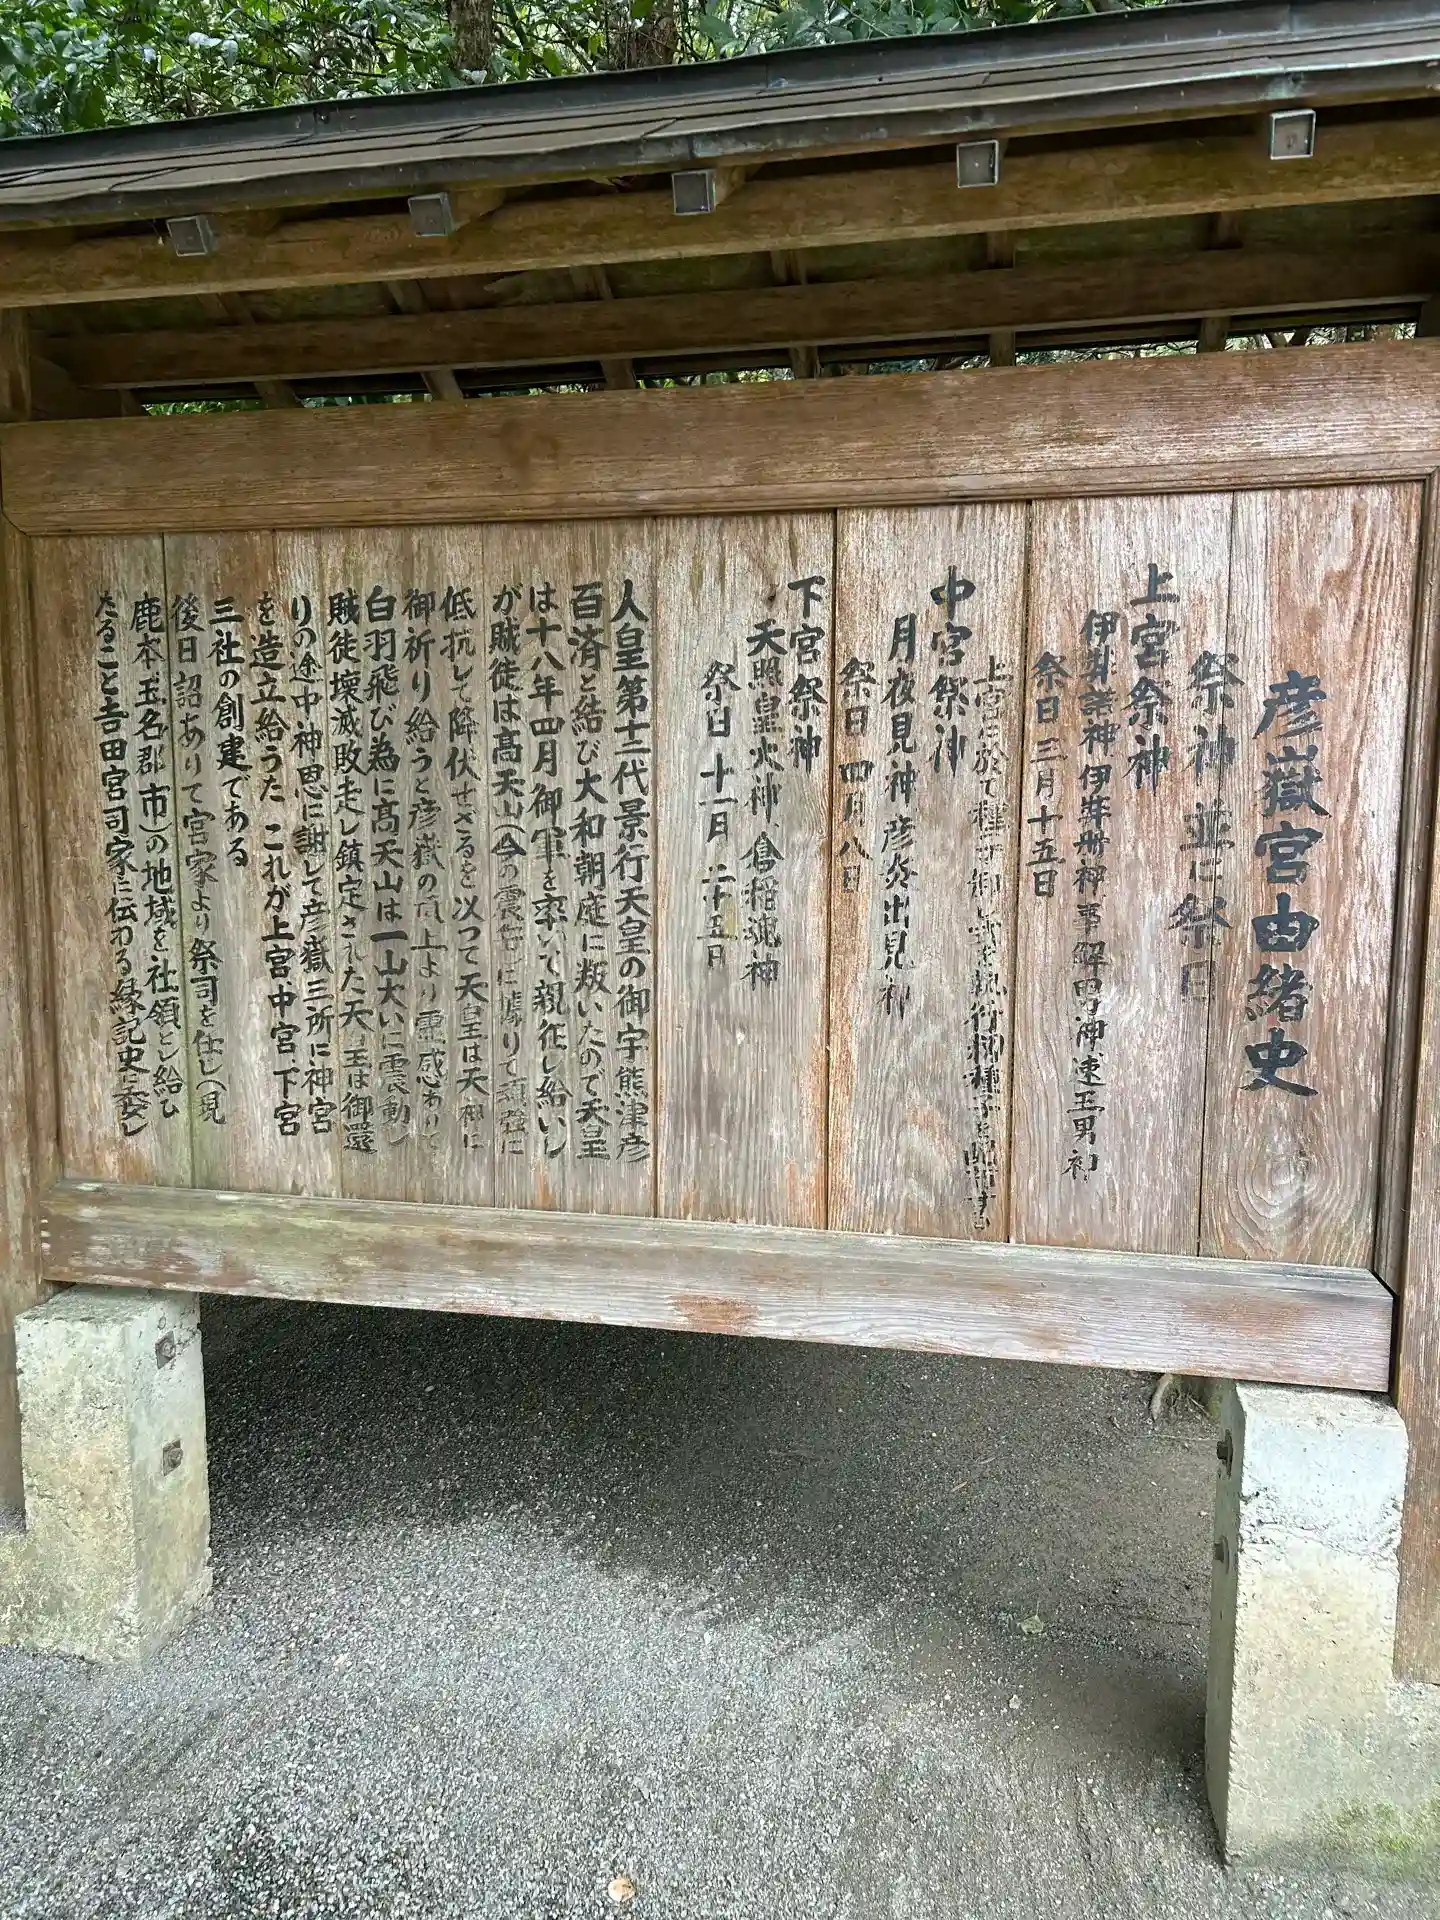 彦嶽宮由緒史
祭神並に祭日
上宮祭神
伊弉諾神 伊弉冊神 事解男神 速玉男神
祭日 三月十五日
上宮に於て種子御
中宮祭神
月夜見神 彦炎出見神
祭日 四月八日
下宮祭神
天照皇大神 倉稲魂神
祭日 十一月二十五日
人皇第十二代景行天皇の御宇熊津彦
百済と結び大和朝庭に叛いたので天皇
は十八年四月御軍を率いて親征し給いし
が賊徒は高天山(今の震岳)に據りて頑強に
低抗して降伏せざるを以つて天皇は天神に
御祈り給うと彦嶽の頂上より霊感ありて
白羽飛び為に高天山は一山大いに震動し
賊徒壊滅敗走し鎮定された天皇は御還
りの途中神恩に謝して彦嶽三所に神宮
を造立給うた これが上宮、中宮、下宮
三社の創建である
後日詔ありて宮家より祭司を任し(現
鹿本、玉名郡市)の地域を社領とし給ひ
たること吉田宮司家に伝わる縁記史に委し